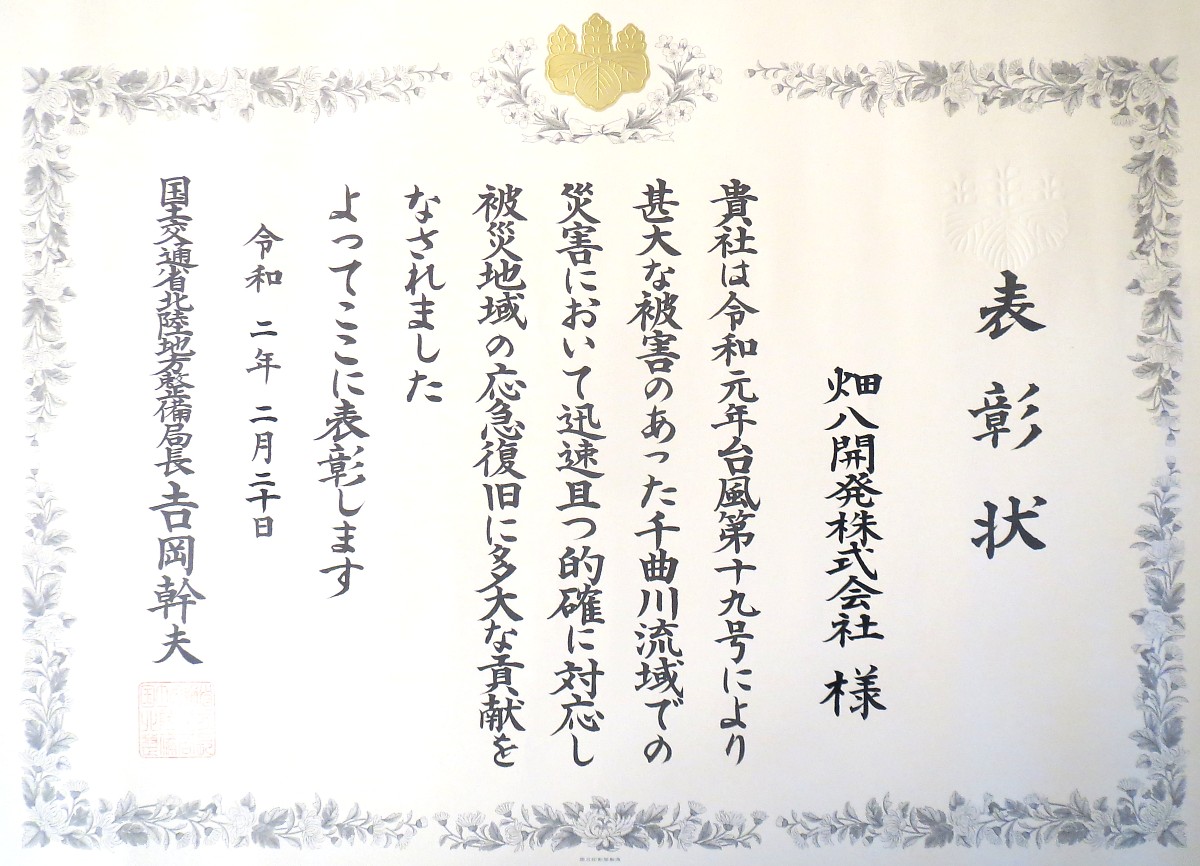 表彰状
畑八開発株式会社 様
貴社は令和元年台風第十九号により
甚大な被害のあった千曲川流域での
災害において迅速且つ的確に対応し
被災地域の応急復旧に多大な貢献を
なされました
よってここに表彰します
令和 二年 二月二十日
国土交通省北陸地方整備局長 吉岡幹夫